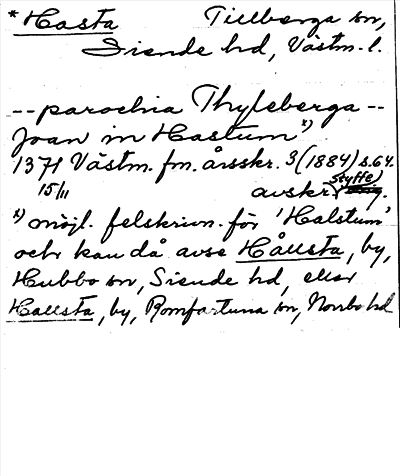 * Hasta Tillberga sn,
Siende hd, Västm. l.
-- parochia Thyleberga --
Joan in Hastum x)
1371 Västm. fm. årsskr. 3 (1884) s. 64.
15/11 avskr. (Styffe).
x) möjl. felskrivn. för 'Halstum'
och kan då avse Hållsta, by,
Hubbo sn, Siende hd, eller
Hallsta, by, Romfartuna sn, Norrbo hd